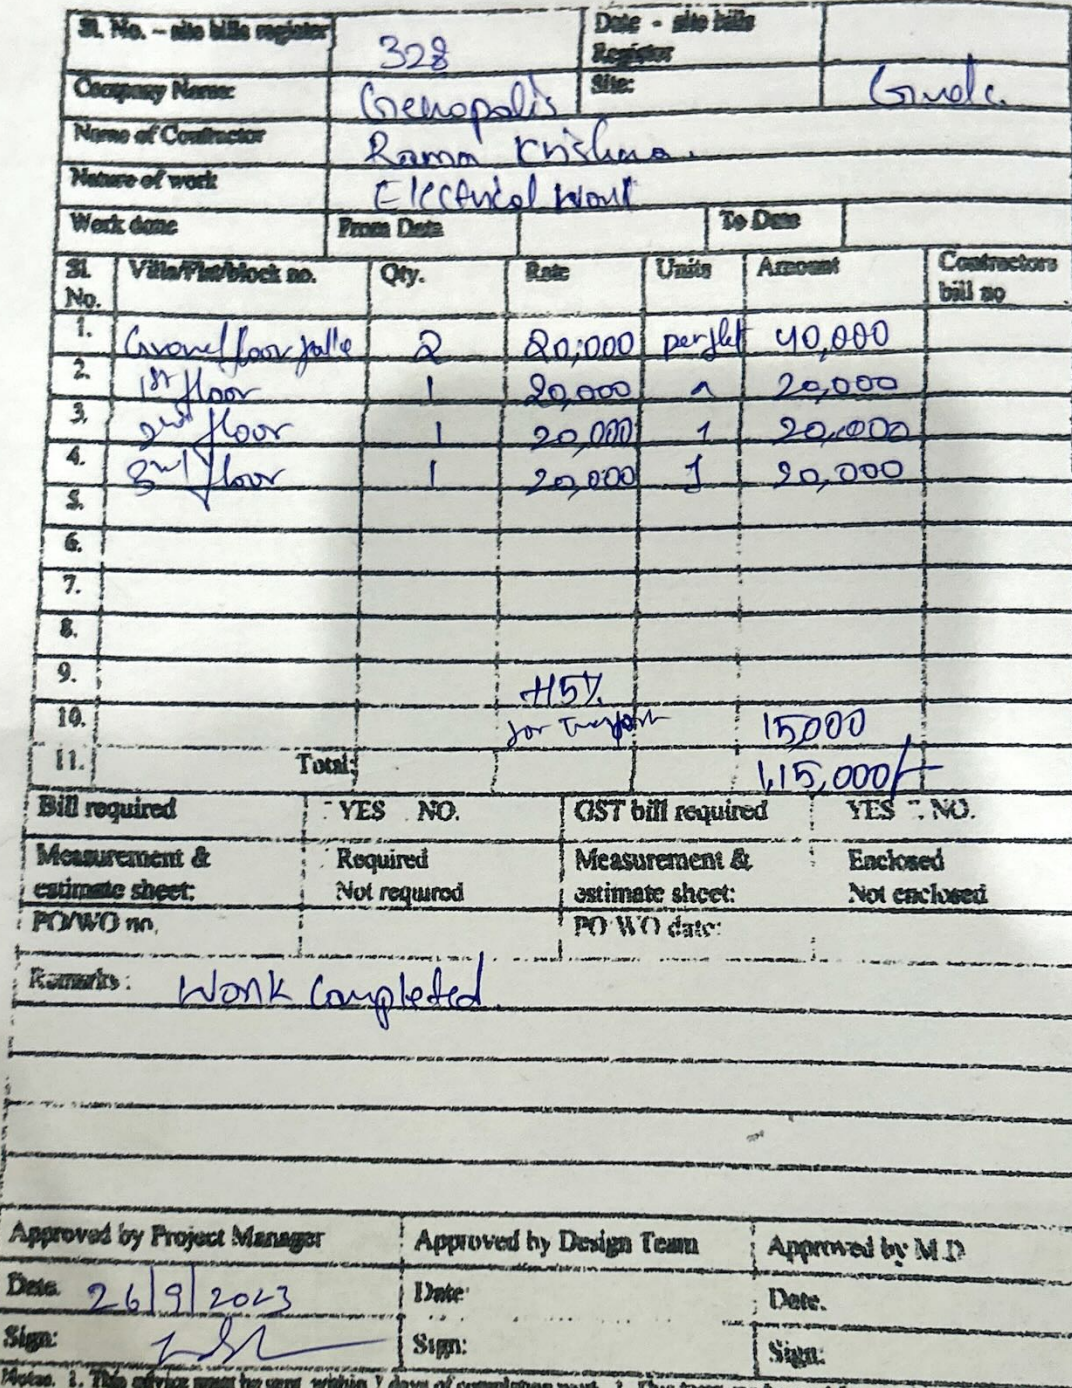 Sl. No. – site bills register 328 Date - site bills Register
Company Name: Genopolis Site:
Name of Contractor Rama Krishna.
Nature of work Electrical Work
Work done From Date To Date
Sl. No. Villa/Flat/block no. Qty. Rate Units Amount Contractors bill no
1. floor 2 20,000 40,000
2. 1st floor 1 20,000 20,000
3. 2nd floor 1 20,000 1 20,000
4. 3rd floor 1 20,000 20,000
5.
6.
7.
8.
9. +15%
10. for 15,000
11. Total: 1,15,000/-
Bill required YES NO. GST bill required YES NO.
Measurement & estimate sheet: Required Not required Measurement & estimate sheet: Enclosed Not enclosed
PO/WO no. PO WO date:
Remarks: Work Completed.
Approved by Project Manager Approved by Design Team Approved by M.D
Date. 26/9/2023 Date: Date.
Sign: Sign: Sign:
Notes. 1. This advice must be sent within 7 days of completion